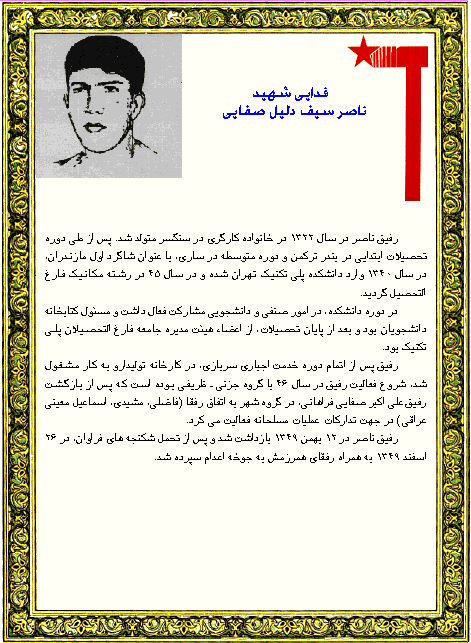 فدایی شهید
ناصر سیف دلیل صفایی
رفیق ناصر در سال ۱۳۲۲ در خانواده کارگری در سنگسر متولد شد. پس از طی دوره
تحصیلات ابتدایی در بندر ترکمن و دوره متوسطه در ساری، با عنوان شاگرد اول مازندران،
در سال ۱۳۴۰ وارد دانشکده پلی تکنیک تهران شده و در سال ۴۵ در رشته مکانیک فارغ
التحصیل گردید.
در دوره دانشکده، در امور صنفی و دانشجویی مشارکت فعال داشت و مسئول کتابخانه
دانشجویان بود و بعد از پایان تحصیلات، از اعضاء هیئت مدیره جامعه فارغ التحصیلان پلی
تکنیک بود.
رفیق پس از اتمام دوره خدمت اجباری سربازی، در کارخانه تولیدارو به کار مشغول
شد، شروع فعالیت رفیق در سال ۴۶ با گروه جزنی - ظریفی بوده است که پس از بازگشت
رفیق علی اکبر صفایی فراهانی، در گروه شهر به اتفاق رفقا (فاضلی، مشیدی، اسماعیل معینی
عراقی) در جهت تدارکات عملیات مسلحانه فعالیت می کرد.
رفیق ناصر در ۱۲ بهمن ۱۳۴۹ بازداشت شد و پس از تحمل شکنجه های فراوان، در ۲۶
اسفند ۱۳۴۹ به همراه رفقای همرزمش به جوخه اعدام سپرده شد.